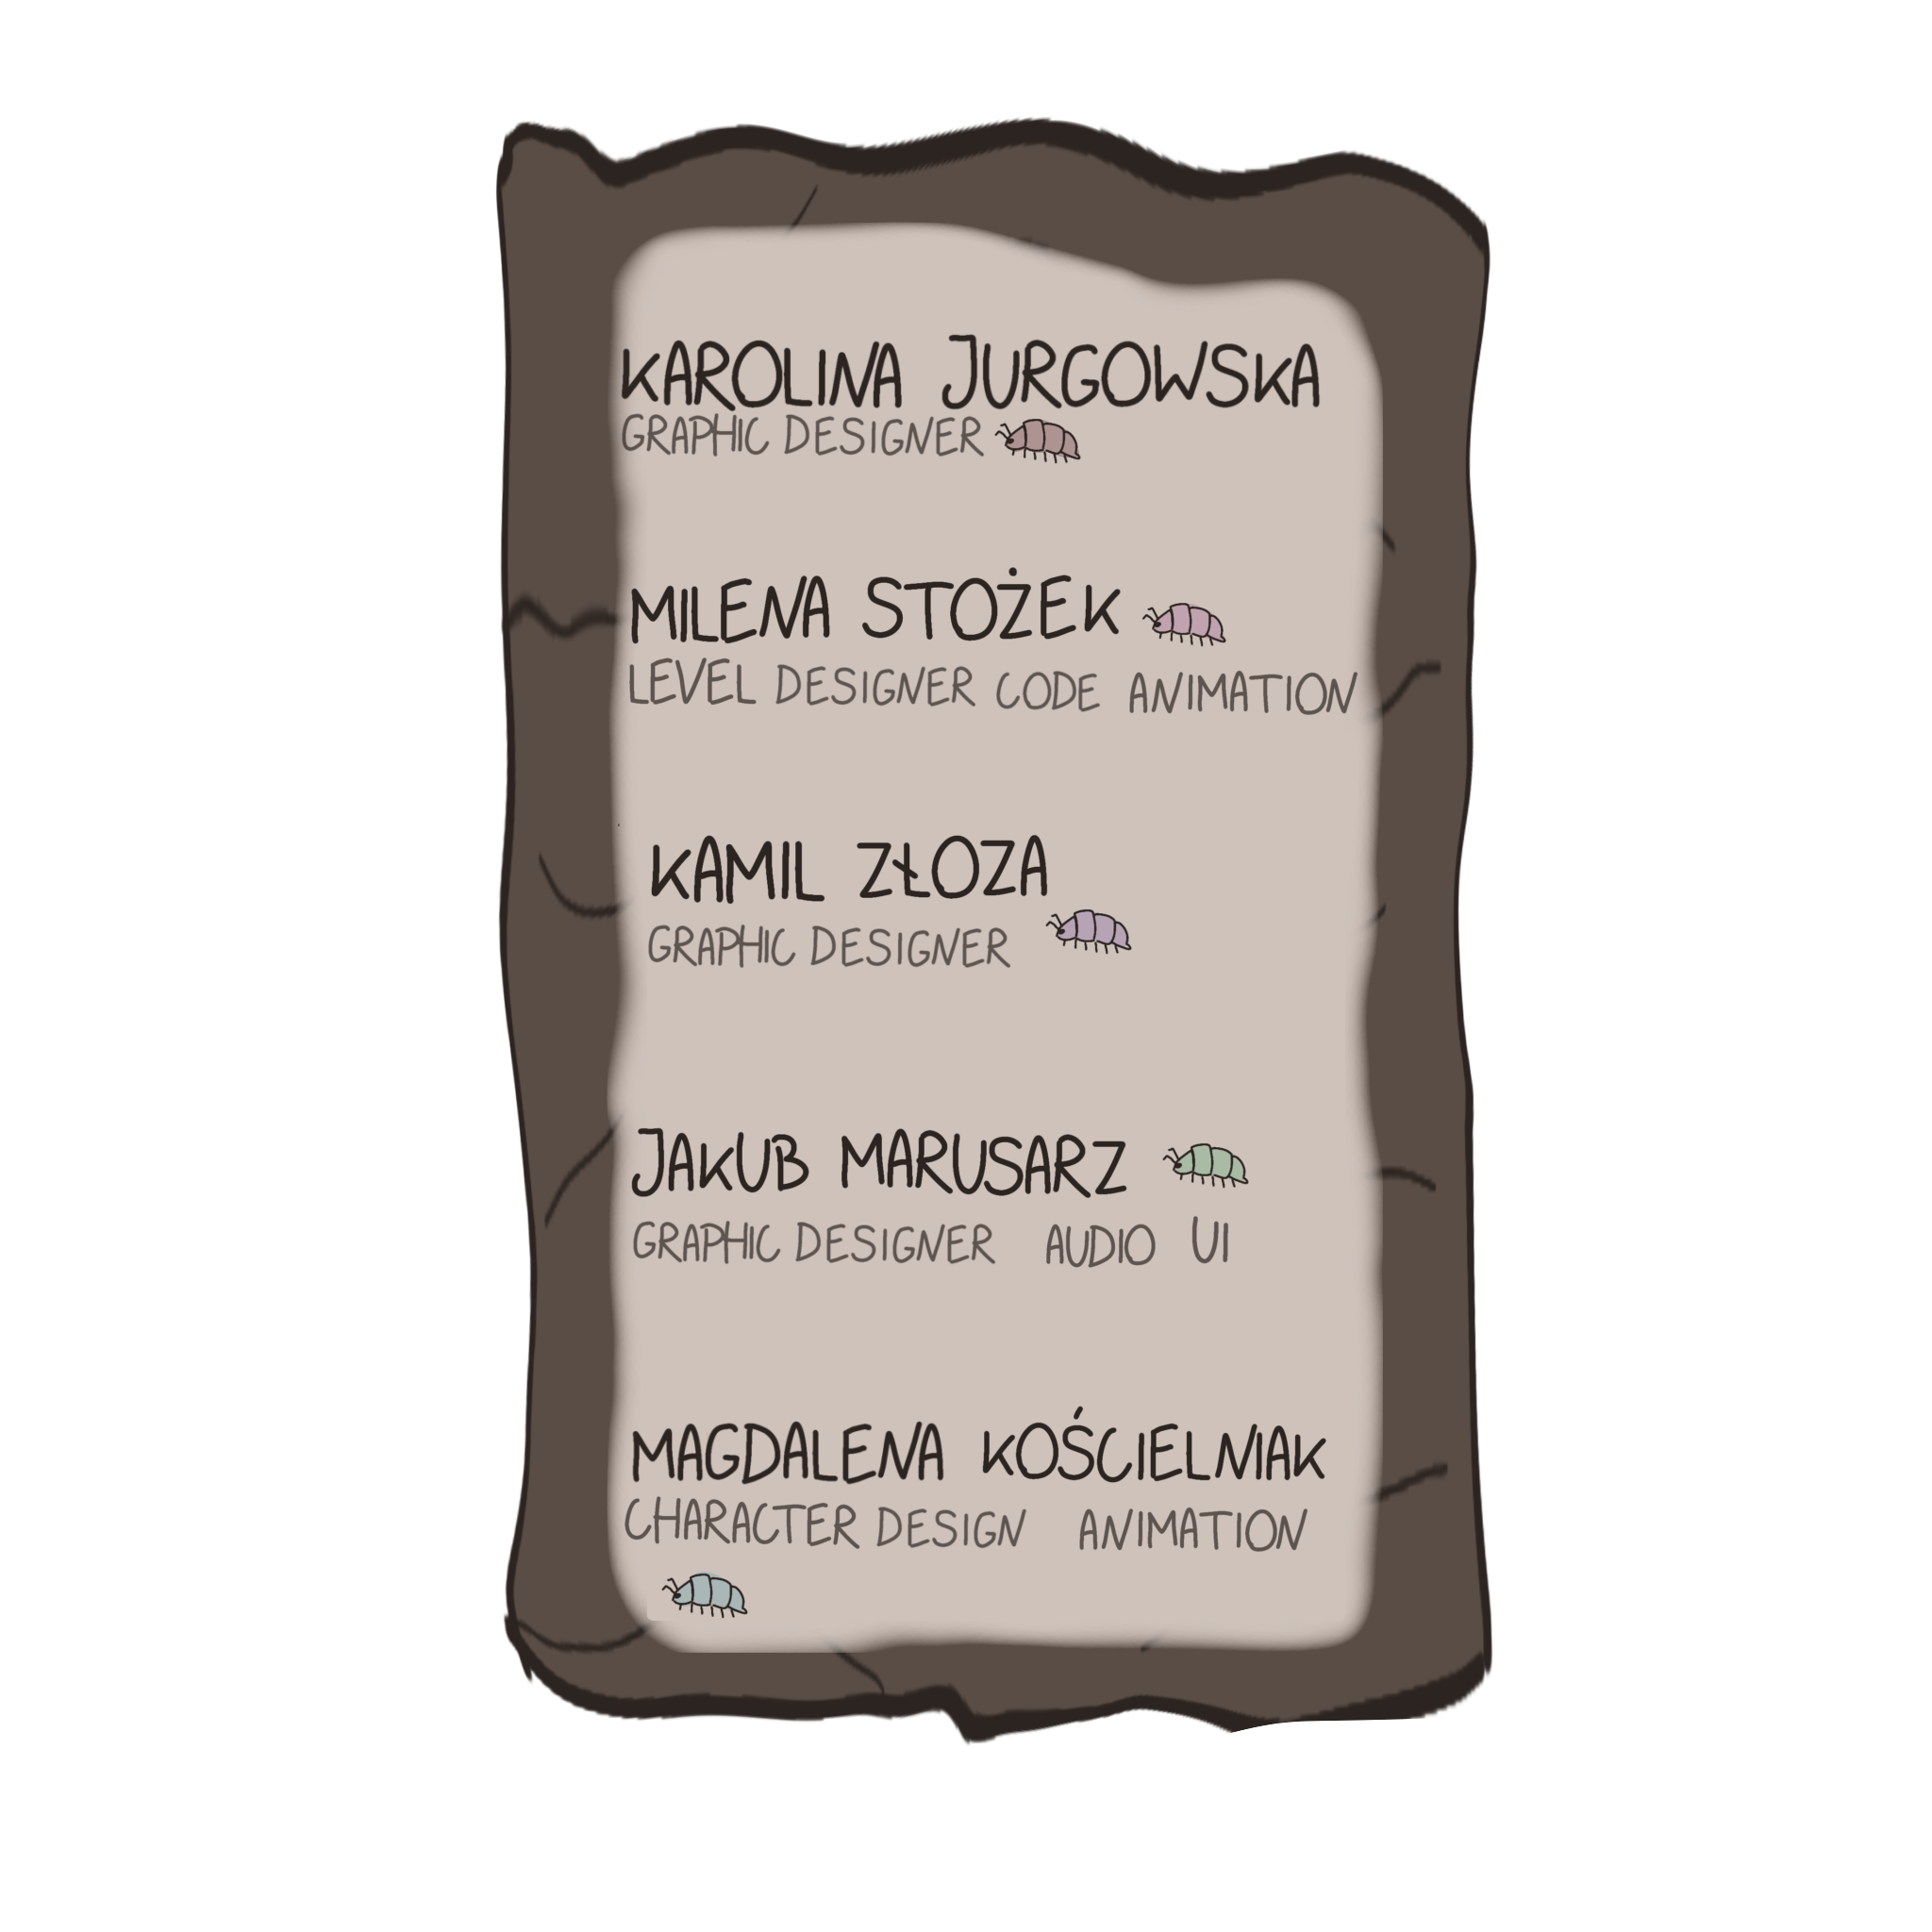 KAROLINA JURGOWSKA
GRAPHIC DESIGNER
MILENA STOŻEK
LEVEL DESIGNER CODE ANIMATION
KAMIL ZŁOZA
GRAPHIC DESIGNER
JAKUB MARUSARZ
GRAPHIC DESIGNER AUDIO UI
MAGDALENA KOŚCIELNIAK
CHARACTER DESIGN ANIMATION